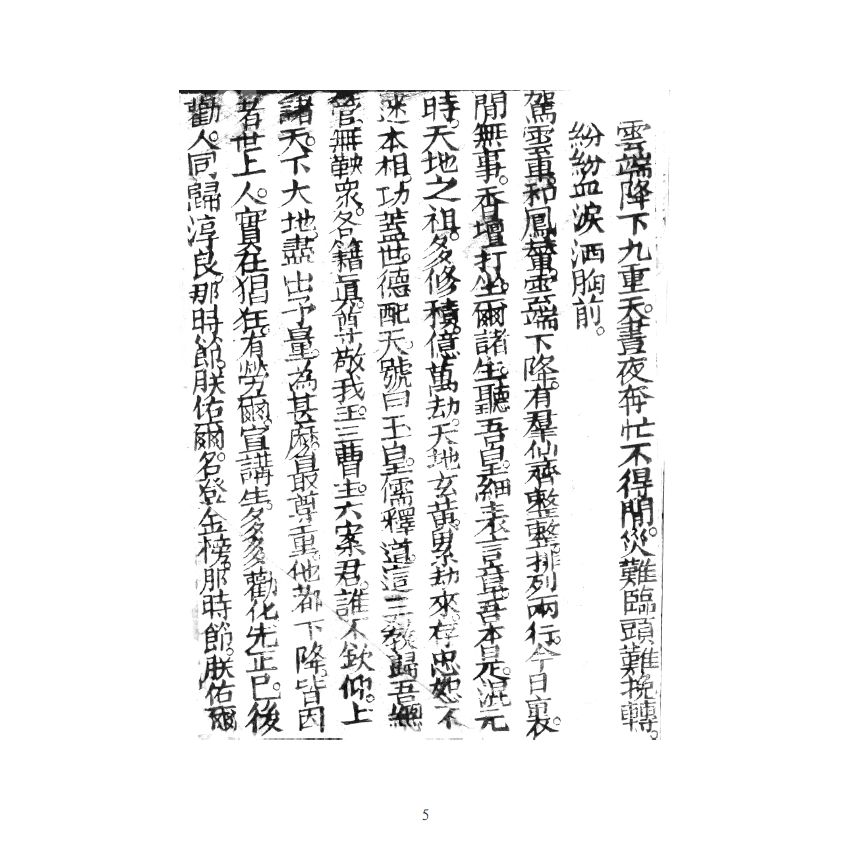 雲端降下九重天。晝夜奔忙不得閒。災難臨頭難挽轉。
紛紛血淚洒胸前。
駕雲車。和鳳輦。雲端下降。有羣仙。齊整整。排列兩行。今日裏。
閒無事。香壇打坐。爾諸生。聽吾皇。細表言章。吾本是。混元
時。天地之祖。多修積。億萬劫。天地玄黃。累劫來。存忠恕。不
迷本相。功蓋世。德配天。號曰玉皇。儒釋道。這三教。歸吾總
管。無鞅衆。各籍眞。尊敬我。主三曹。主六案君。誰不欽仰。上
諸天。下大地。盡出予量。為甚麽。最尊重。他都下降。皆因
者世上人。實在猖狂。有勞爾。宣講生。多多勸化。先正己。後
勸人。同歸淳良。那時節。朕佑爾。名登金榜。那時節。朕佑爾
5